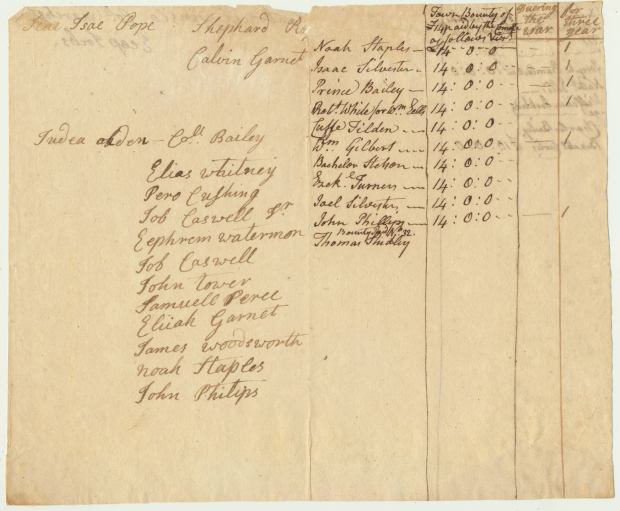 Isac Pope Shephard
Calvin Garnet
Judea alden - Coll. Bailey
Elias Whitney
Pero Cushing
Job Caswell Jr
Eephrem watermon
Job Caswell
John tower
Samuell Perce
Elijah Garnet
James Woodsworth
noah Staples
John Philips
Town Bounty of
£14 paid by the
as follows Viz
During the war
for three year
Noah Staples - £14 - 0 - 0 1
Isaac Silvester - 14 : 0 : 0 1
Prince Bailey - 14 : 0 : 0 1
Robt White for Wm Eells 14 : 0 : 0 1
Cuffe Tilden - 14 : 0 : 0
Wm Gilbert - 14 : 0 : 0
Bachelor Stetson - 14 : 0 : 0
Turner - 14 : 0 : 0
Joel Silvester - 14 : 0 : 0
John Phillips - 14 : 0 : 0 - 1
Bounty No. 32.
Thomas